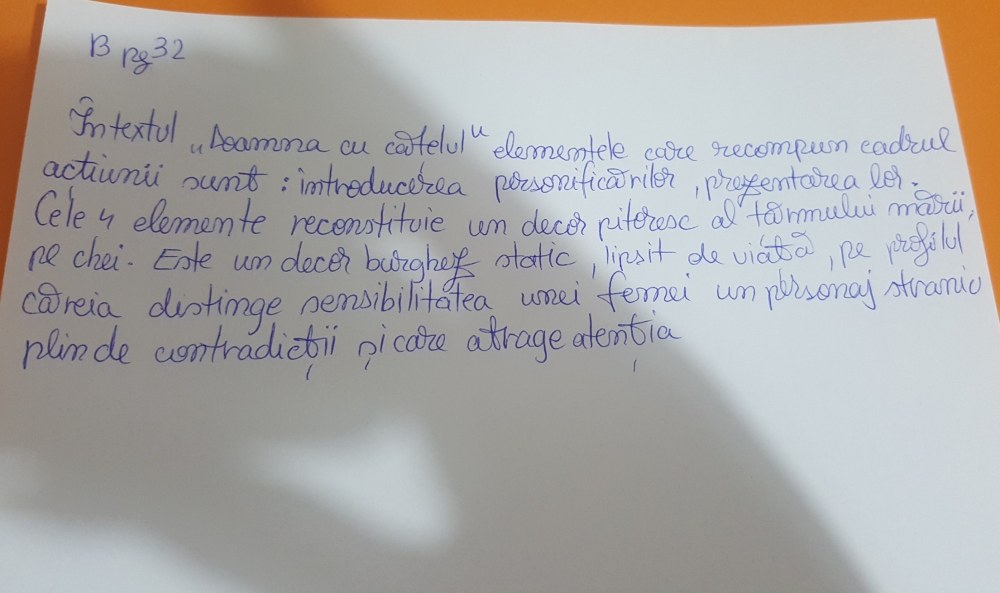 B pg 32
În textul „Doamna cu cățelul" elementele care recompun cadrul
actiunii sunt : introducerea personificărilor, prezentarea lor.
Cele 4 elemente reconstituie un decor pitoresc al tărmului mării,
pe chei. Este un decor burghez static, lipsit de viată, pe profilul
căreia distinge sensibilitatea unei femei un personaj straniu
plin de contradicții și care atrage atenția